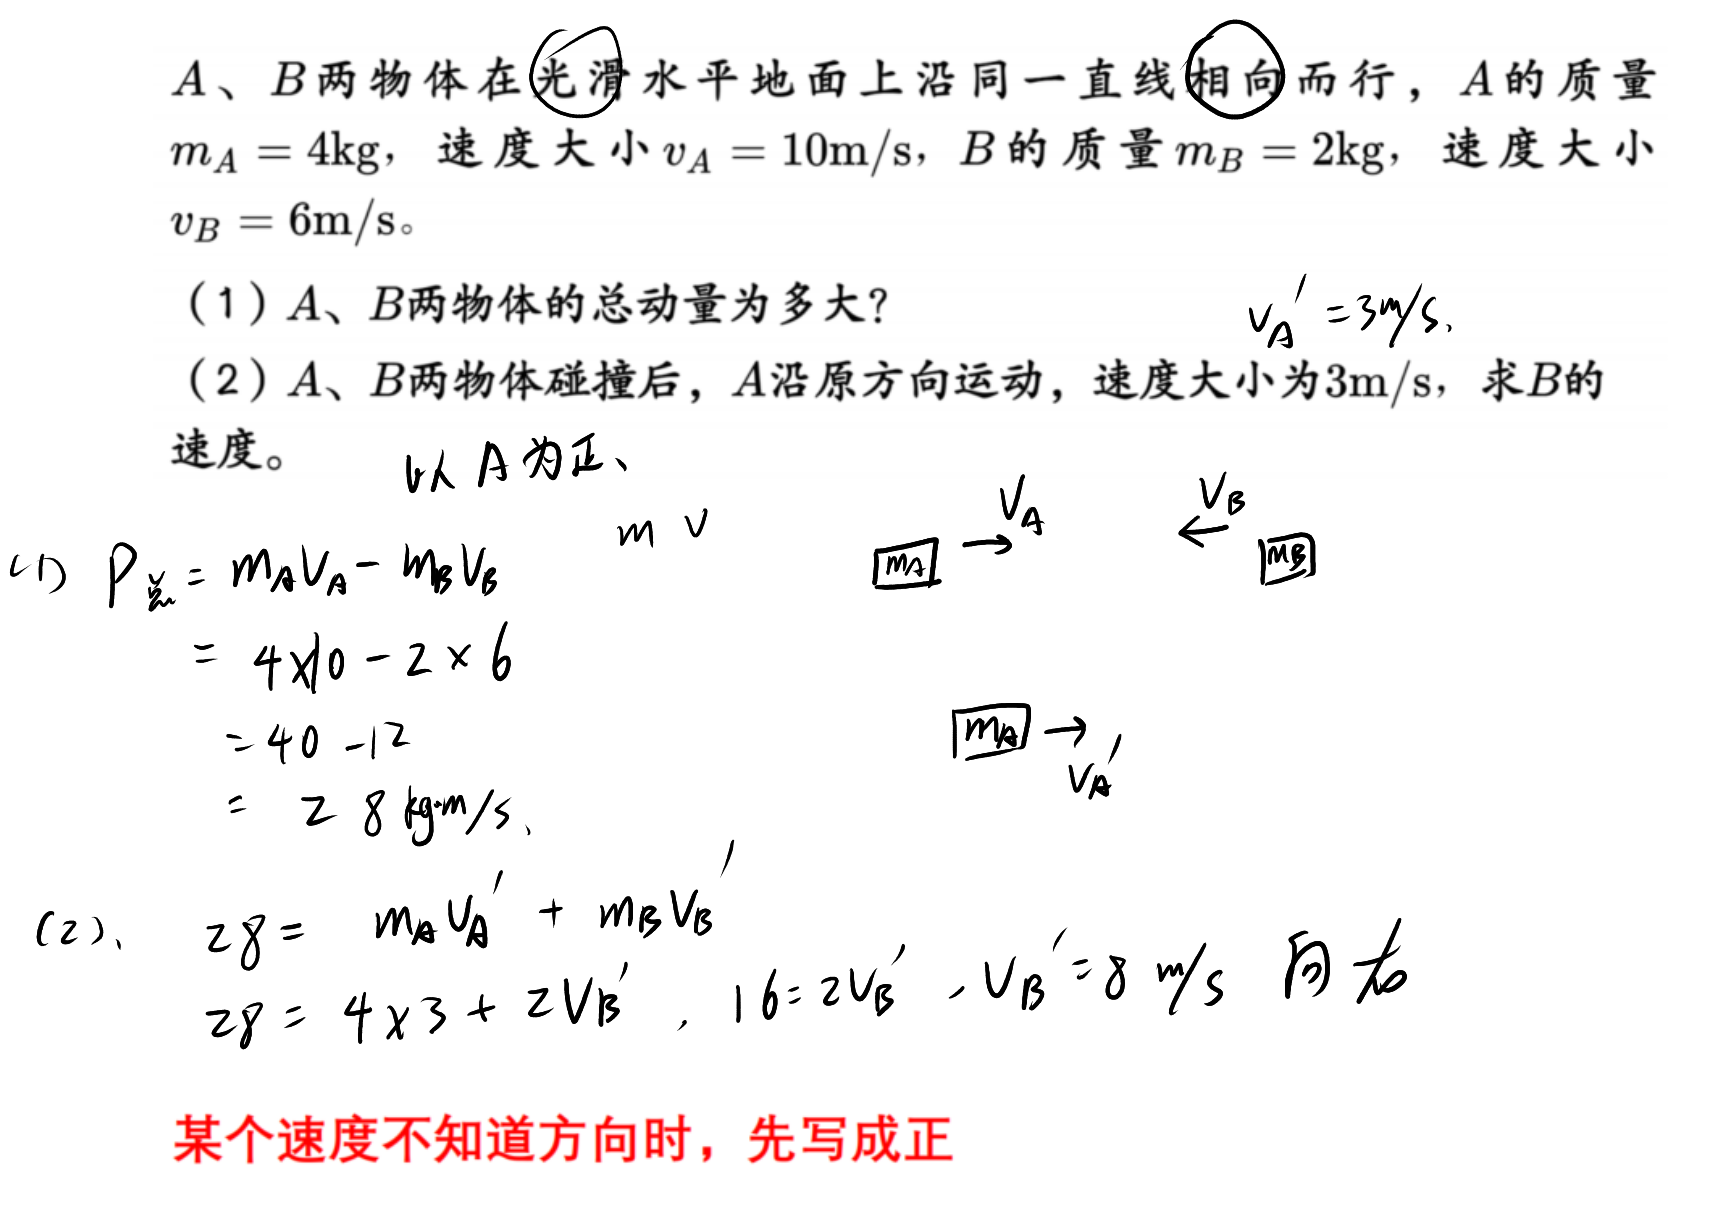 A、B两物体在光滑水平地面上沿同一直线相向而行，A的质量
m_A = 4kg，速度大小v_A = 10m/s，B的质量m_B = 2kg，速度大小
v_B = 6m/s。
（1）A、B两物体的总动量为多大？
v_A' = 3m/s.
（2）A、B两物体碰撞后，A沿原方向运动，速度大小为3m/s，求B的
速度。
以A为正、
m v
V_A
V_B
m_A → ← m_B
(1) P总 = m_A V_A - m_B V_B
= 4×10 - 2×6
= 40 - 12
m_A →
V_A'
= 28 kg·m/s、
(2)、 28 = m_A V_A' + m_B V_B'
28 = 4×3 + 2V_B' , 16 = 2V_B' , V_B' = 8 m/s 向右
某个速度不知道方向时，先写成正